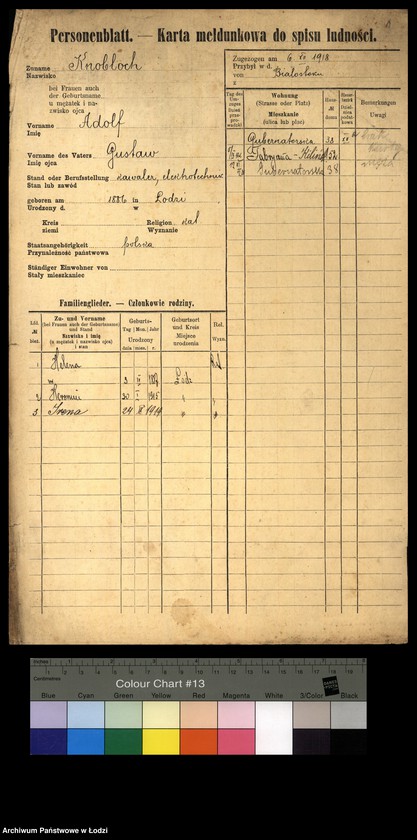 Personenblatt. — Karta meldunkowa do spisu ludności.
Zuname
Nazwisko
Knobloch
bei Frauen auch
der Geburtsname
u mężatek i na-
zwisko ojca
Vorname
Imię
Adolf
Vorname des Vaters
Imię ojca
Gustaw
Stand oder Berufsstellung
Stan lub zawód
kawaler, elechotechnik
geboren am
Urodzony d.
1886 in
w
Lodzi
Kreis
ziemi
Religion
Wyznanie
kat
Staatsangehörigkeit
Przynależność państwowa
polska
Ständiger Einwohner von
Stały mieszkaniec
Zugezogen am
Przybył w d.
6 VI 1918
von
z
Białostoku
Wohnung
(Strasse oder Platz)
Mieszkanie
(ulica lub plac)
Bemerkungen
Uwagi
Gubernatorska 38
Fabryczna - Kiliń
Gubernatorska 38
Familienglieder. — Członkowie rodziny.
Zu- und Vorname
(bei Frauen auch der Geburtsname)
und Stand
Nazwisko i imię
(u mężatek i nazwisko ojca)
i stan
Geburts-
Tag Mon. Jahr
Urodzony
dnia mies. r.
Geburtsort
und Kreis
Miejsce
urodzenia
Rel.
Wyzn.
1 Helena
3 1887 Łódź
2
30 1905
3 Irena 24 1914
Inches
Centimetres
Colour Chart #13
Blue Cyan Green Yellow Red Magenta White 3/Color Black
Archiwum Państwowe w Łodzi